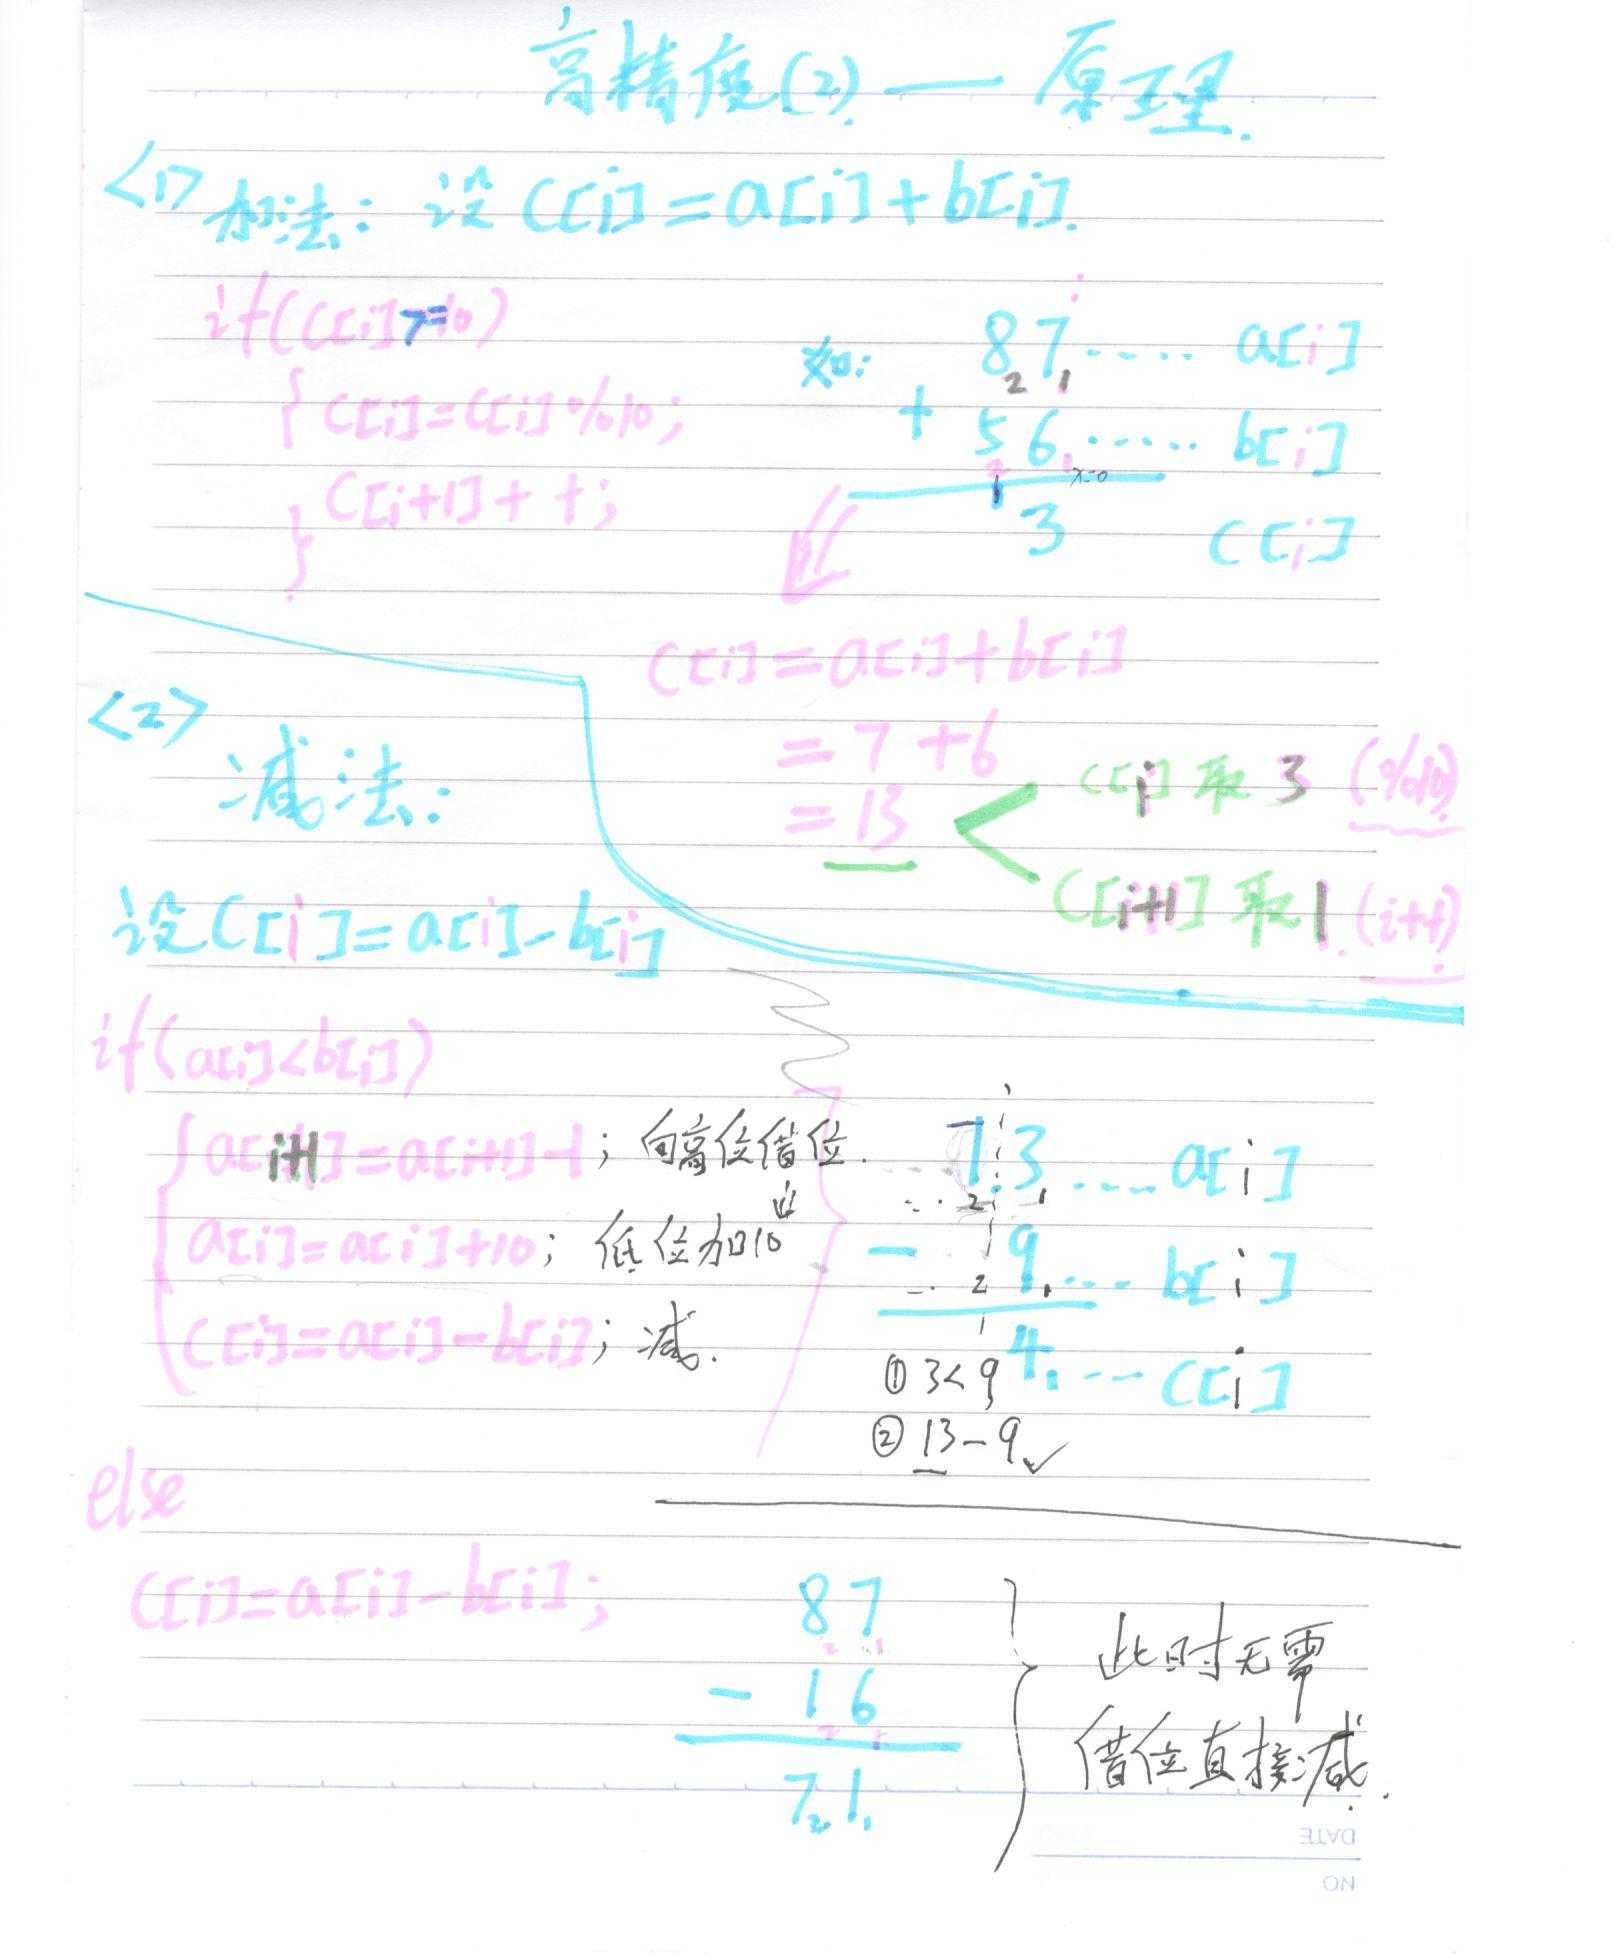 高精度(2) — 原理.
<1> 加法: 设 C[i]=a[i]+b[i].
if(C[i]>=10)
{ C[i]=C[i]%10;
C[i+1]++;
}
如:
i
87 ..... a[i]
2 1
+ 56 ..... b[i]
2 1 x=0
1
3 C[i]
C[i]=a[i]+b[i]
=7+6
=13
C[i] 取 3 (%10)
C[i+1] 取 1. (i++)
<2> 减法:
设C[i]=a[i]-b[i]
if(a[i]<b[i])
{ a[i+1]=a[i+1]-1; 向高位借位.
a[i]=a[i]+10; 低位加10
C[i]=a[i]-b[i]; 减.
73 .... a[i]
2 1
- 9 ... b[i]
2 1
4 ... C[i]
1
① 3<9
② 13-9 ✓
else
C[i]=a[i]-b[i];
87
2 1
- 16
2 1
71
2 1
} 此时无需
借位直接减.
DATE
NO